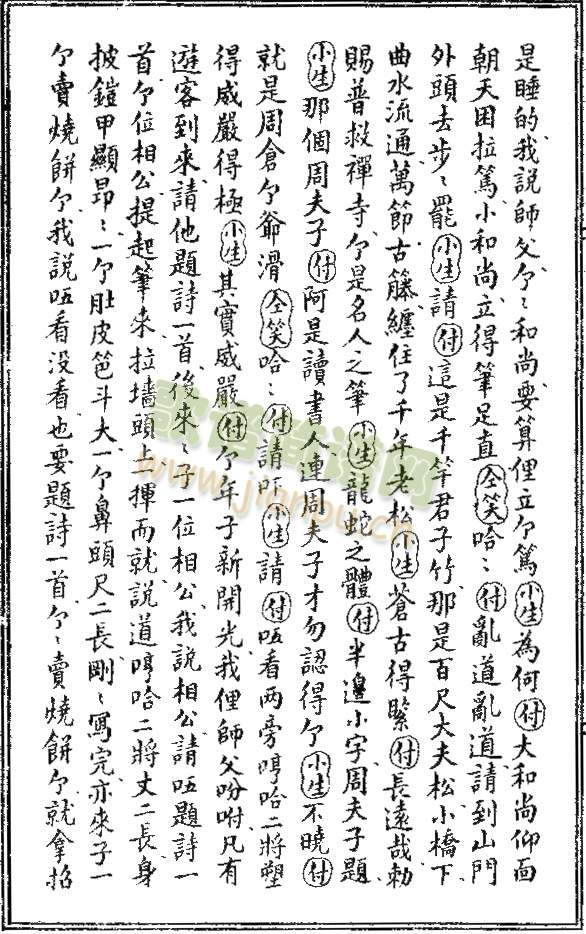 是睡的我說師父ケ〻和尚要算俚立ケ篤小生為何付大和尚仰面
朝天困拉篤小和尚立得筆足直仝笑哈〻付亂道亂道請到山門
外頭去步〻罷小生請付這是千竿君子竹那是百尺大夫松小橋下
曲水流通萬節古籐纏住了千年老松小生蒼古得緊付長遠哉勅
賜普救禪寺ケ是名人之筆小生龍蛇之體付半邊小字周夫子題
小生那個周夫子付阿是讀書人連周夫子才勿認得ケ小生不曉付
就是周倉ケ爺滑仝笑哈〻付請吓小生請付唔看兩旁哼哈二將塑
得威嚴得極小生其實威嚴付ケ年子新開光我俚師父吩咐凡有
遊客到來請他題詩一首後來〻子一位相公我說相公請唔題詩一
首ケ位相公提起筆來拉墻頭上一揮而就說道哼哈二將丈二長身
披鎧甲顯昂〻一ケ肚皮笆斗大一ケ鼻頭尺二長剛〻寫完亦來子一
ケ賣燒餅ケ我說唔看沒看也要題詩一首ケ〻賣燒餅ケ就拿招
歌譜簡譜网
www.jianpu.cn